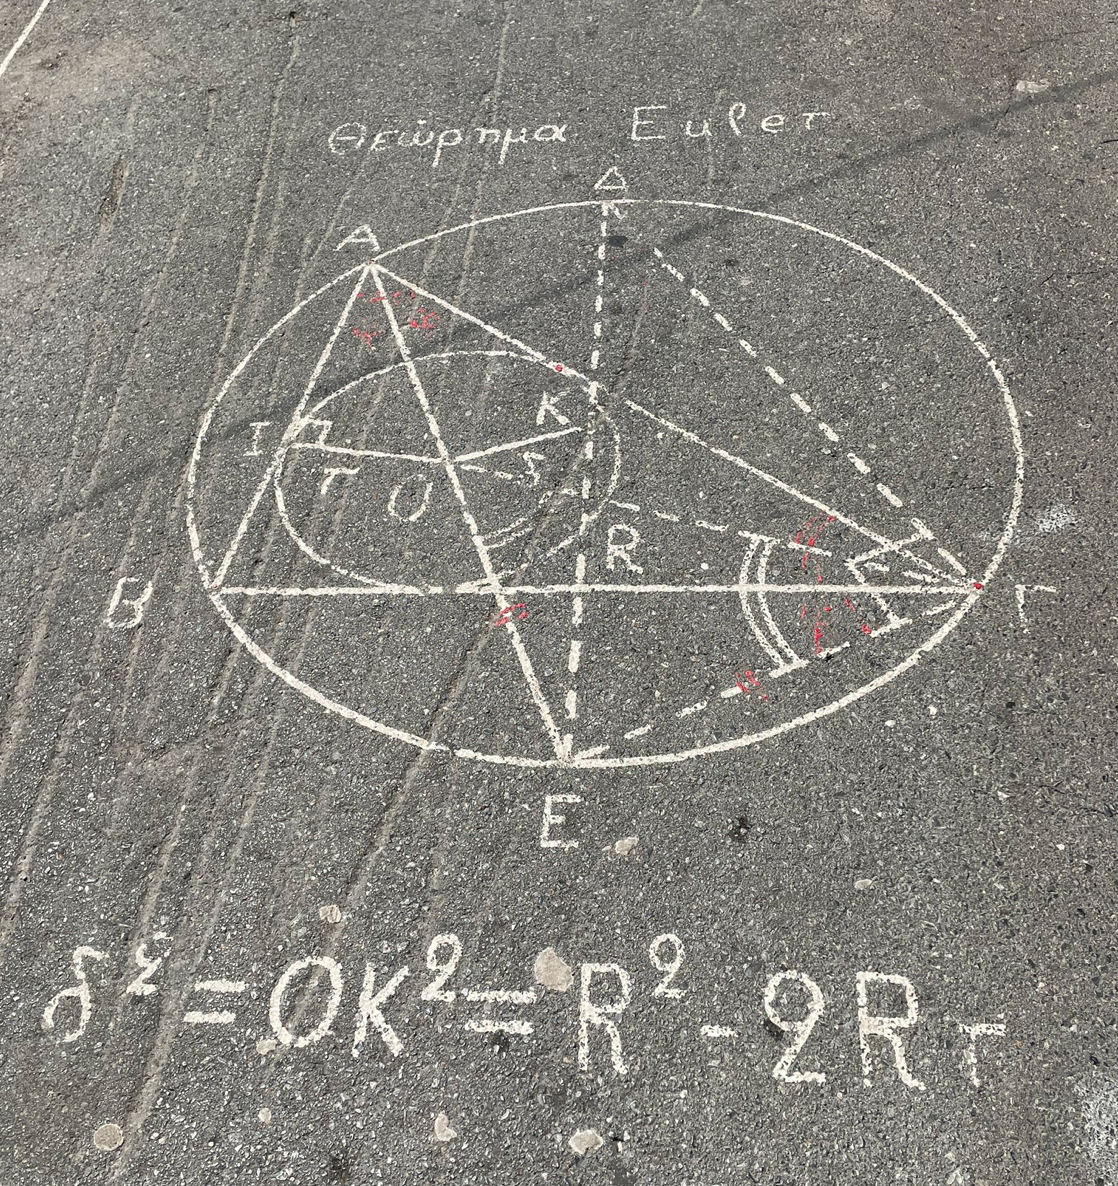 Θεώρημα Euler
Δ
A
K
I
r
O
δ
R
B
Γ
E
δ² = OK² = R² - 2Rr